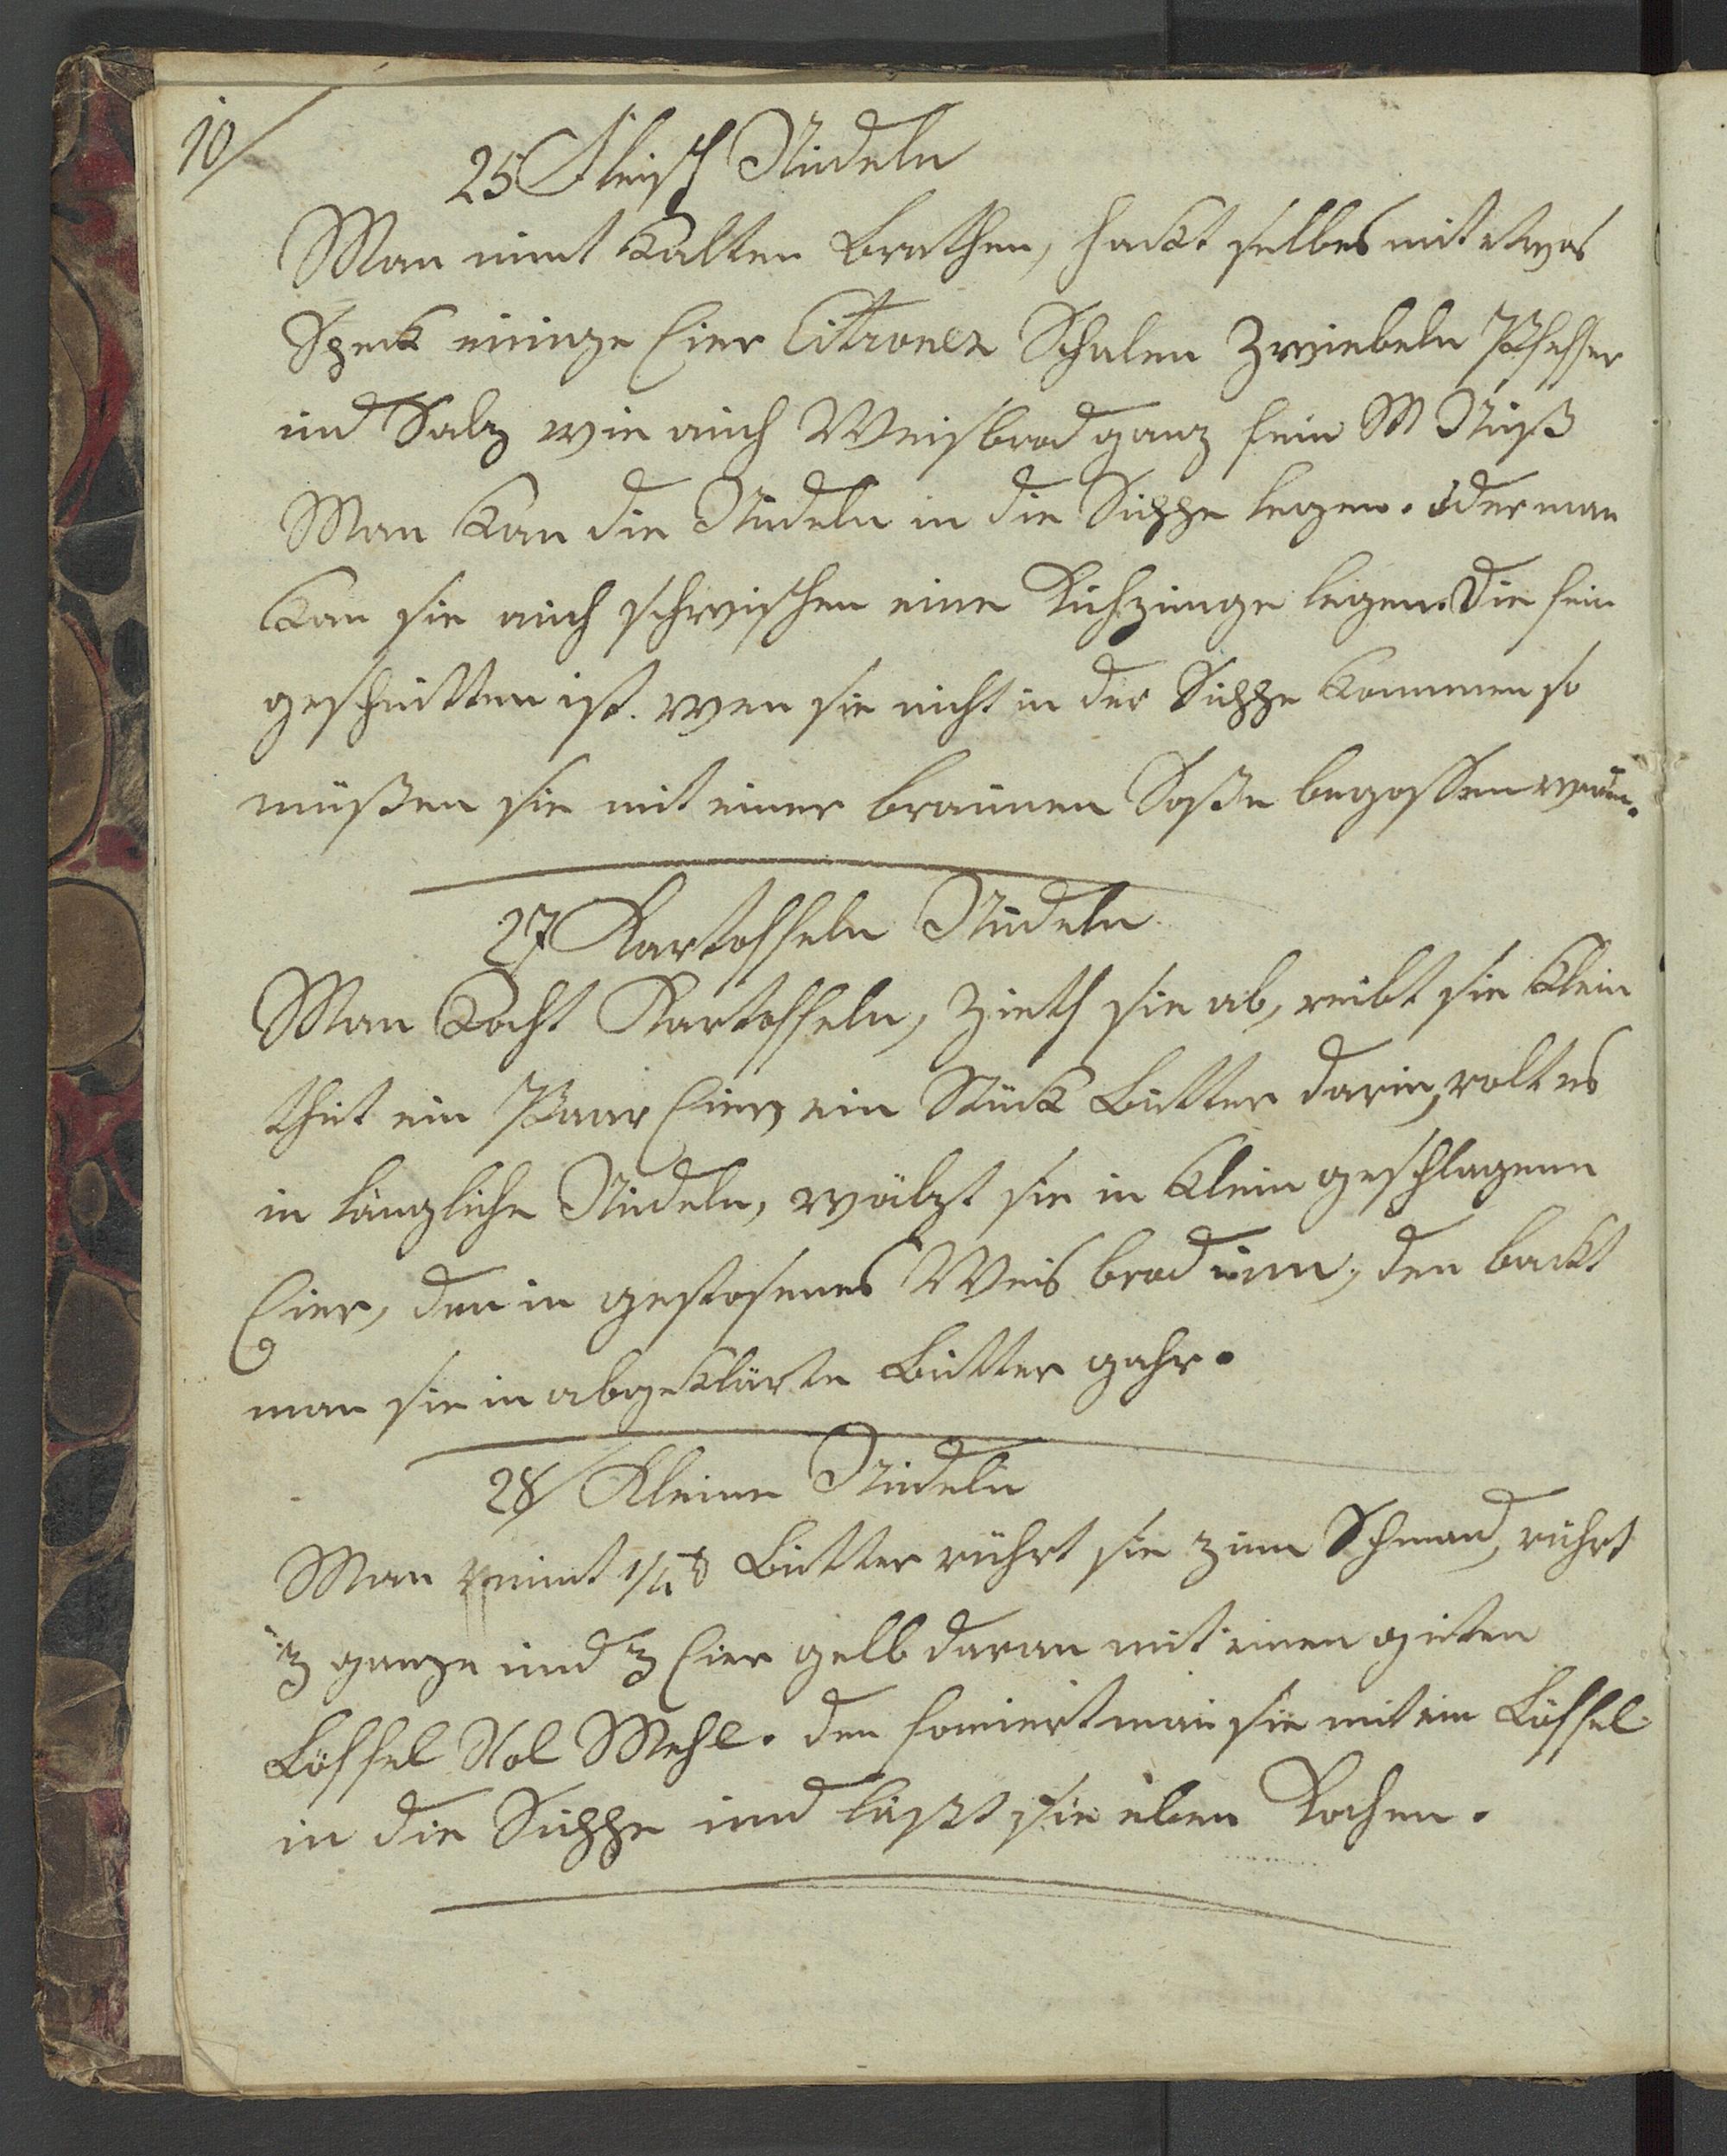 10/
25 Fleisch Nudeln
Man nimt kalten Brathen, hackt selbes mit etwas
Speck einige Eier Citronen Schalen Zwiebeln Pfeffer
und Salz wie auch Weisbrod ganz fein M Nuß
Man kan die Nudeln in die Suppe legen. oder man
kan sie auch schwischen eine Kuhzunge legen. Die fein
geschnitten ist. wen sie nicht in der Suppe kommen so
müßen sie mit einer braunen Soße begossen werden.
27 Kartoffeln Nudeln
Man kocht Kartoffeln, zieth sie ab, reibt sie klein
thut ein Paar Eier, ein Stück Butter darin, rolt es
in längliche Nudeln, wälzt sie in klein geschlagenen
Eier, den in gestosenes Weis brod um, den backt
man sie in abgeklärte Butter gahr.
28/ Kleine Nudeln
Man nimt 1/4 ℔ Butter rührt sie zum Schmand, rührt
3 ganze und 3 Eier gelb daran mit einen guten
Löffel Vol Mehl. den man sie mit ein Löffel
in die Suppe und läßt sie eben kochen.